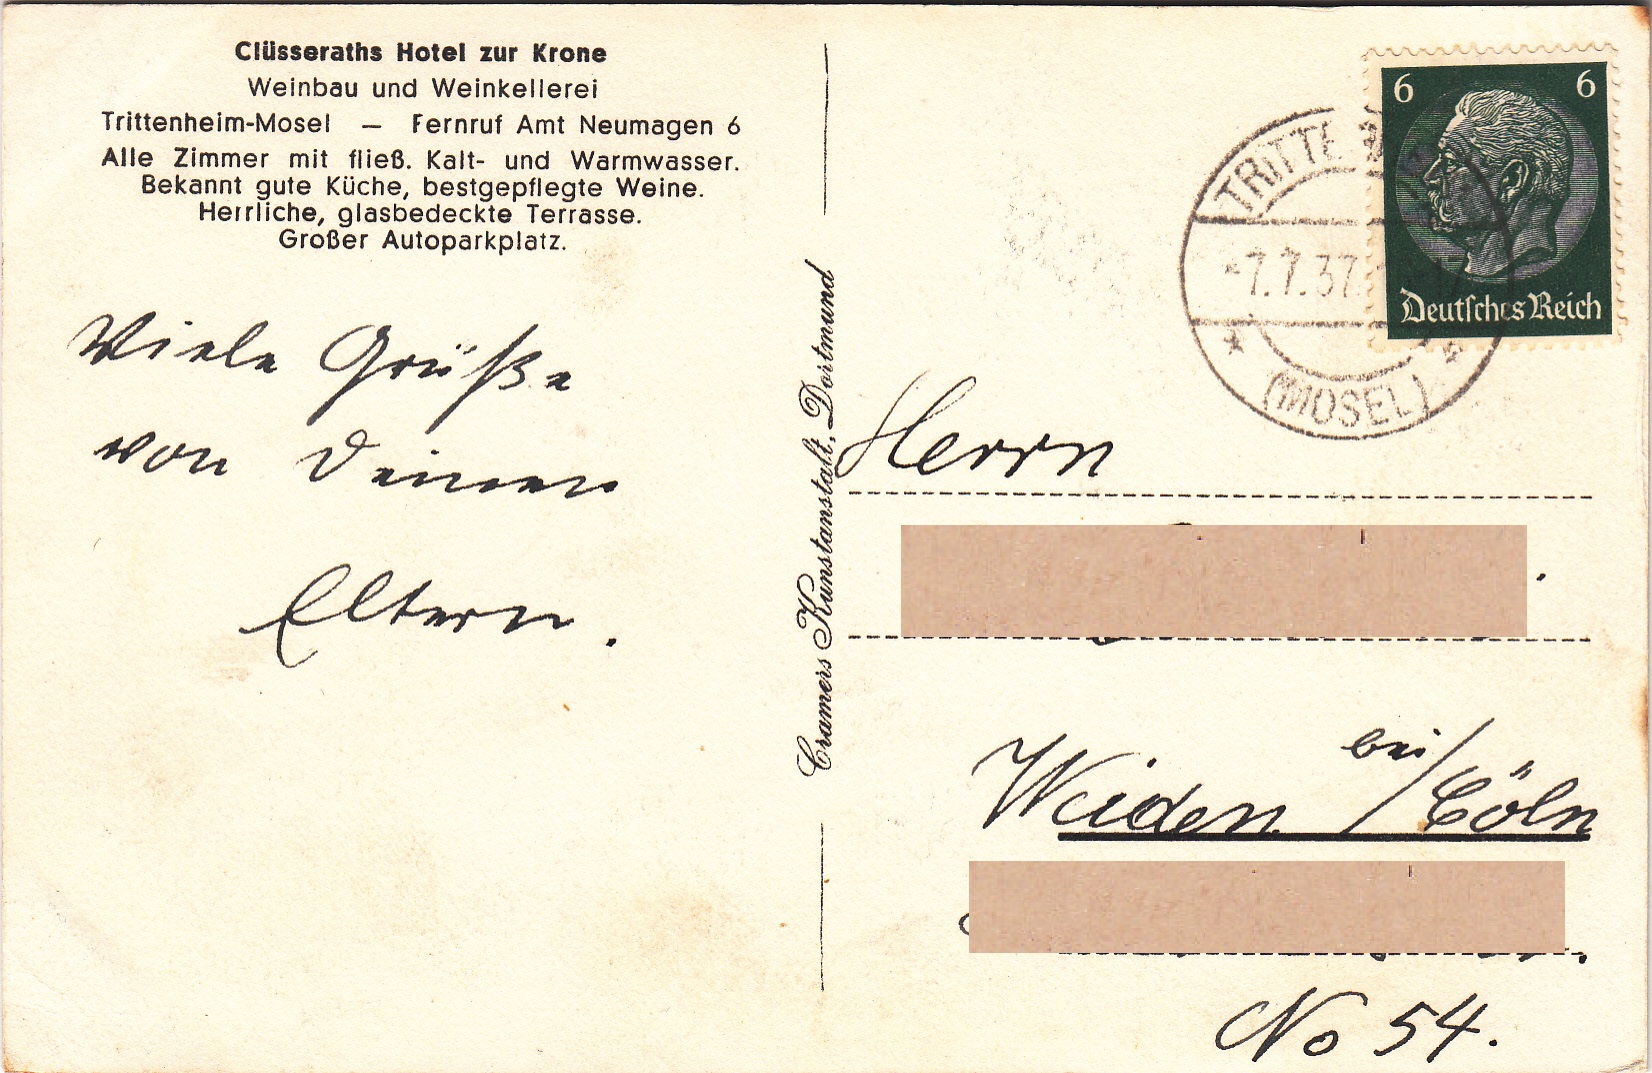 Clüsseraths Hotel zur Krone
Weinbau und Weinkellerei
Trittenheim-Mosel — Fernruf Amt Neumagen 6
Alle Zimmer mit fließ. Kalt- und Warmwasser.
Bekannt gute Küche, bestgepflegte Weine.
Herrliche, glasbedeckte Terrasse.
Großer Autoparkplatz.
Viele Grüße
von Deinen
Eltern.
Cramers Kunstanstalt, Dortmund
6 6
Deutsches Reich
TRITTE
7.7.37
(MOSEL)
Herrn
Weiden bei/Cöln
No 54.